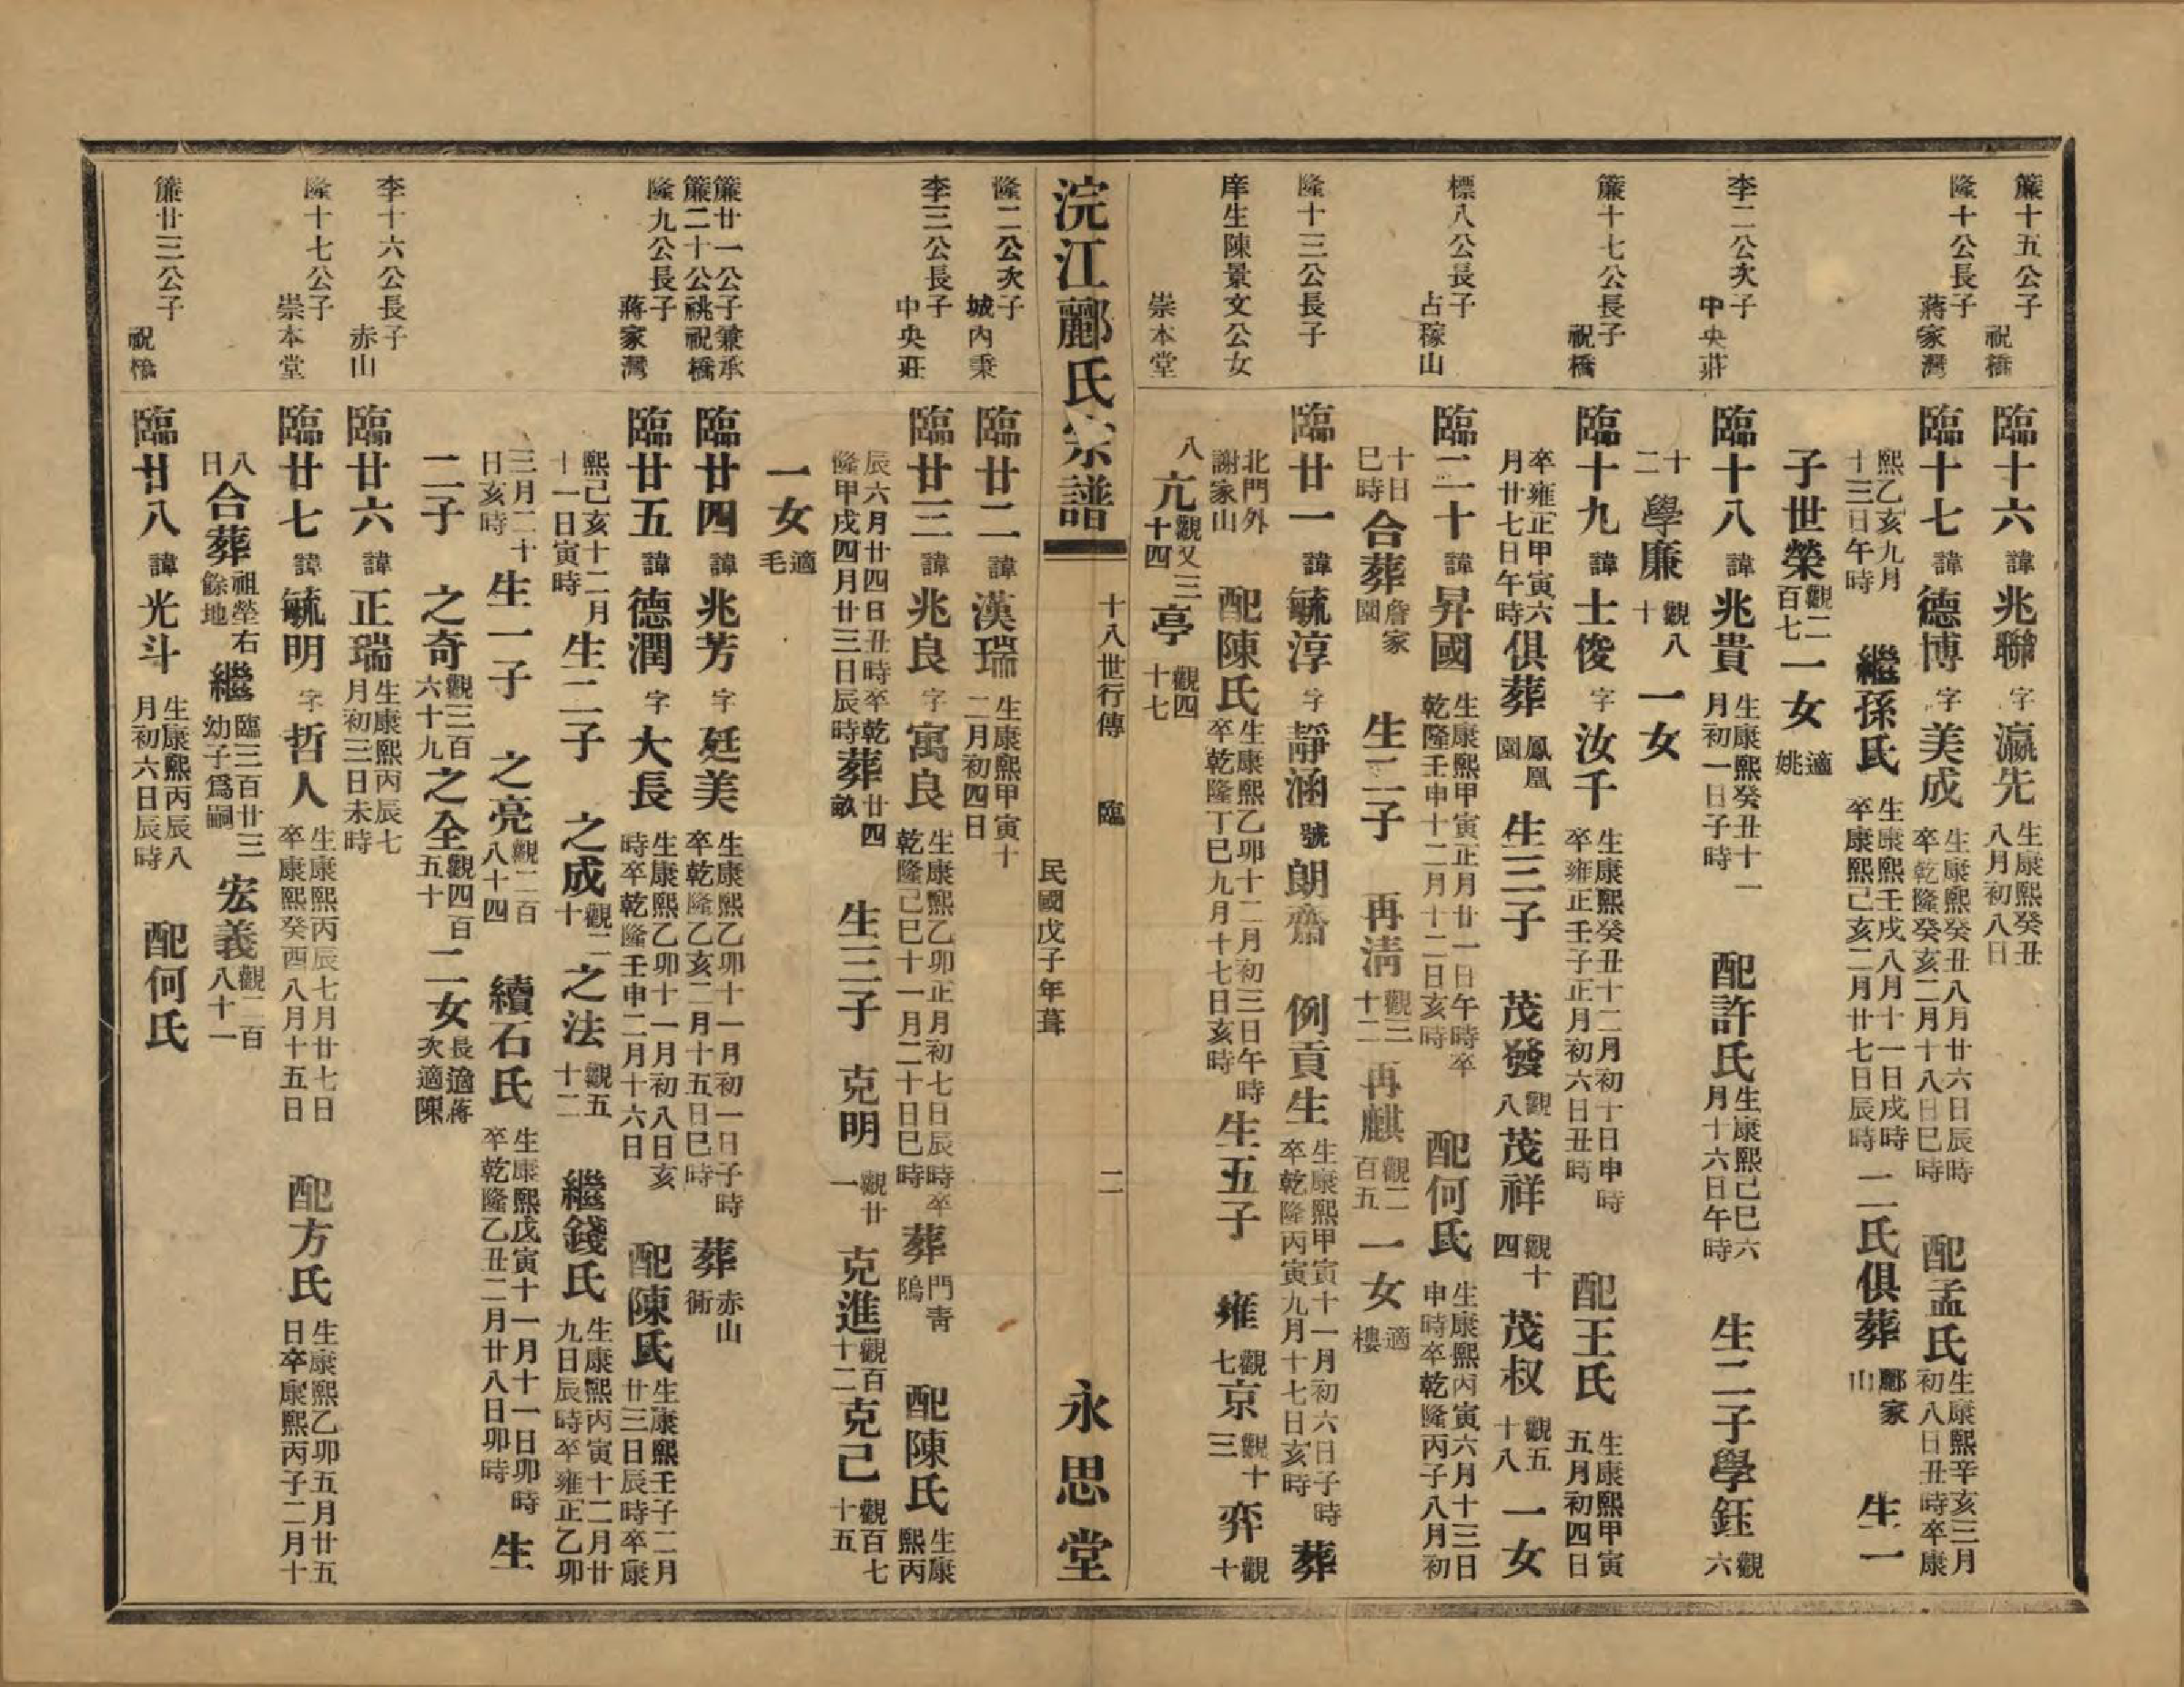 簾十五公子 祝橋
臨十六 諱 兆聯 字 瀛先 生康熙癸丑八月初八日
隆十公長子 蔣家灣
臨十七 諱 德博 字 美成 生康熙癸丑八月廿六日辰時卒乾隆癸亥二月十八日巳時 配孟氏 生康熙辛亥三月初八日丑時卒康
熙乙亥九月十三日午時 繼孫氏 生康熙壬戌八月十一日戌時卒康熙己亥二月廿七日辰時 二氏俱葬 酈家山 生一
子世榮 觀二百七 一女 適姚
李二公次子 中央莊
臨十八 諱 兆貴 生康熙癸丑十一月初一日子時 配許氏 生康熙己巳六月十六日午時 生二子學鈺 觀六
十二 學廉 觀八十 一女
簾十七公長子 祝橋
臨十九 諱 士俊 字 汝千 生康熙癸丑十二月初十日申時卒雍正壬子正月初六日丑時 配王氏 生康熙甲寅五月初四日
卒雍正甲寅六月廿七日午時 俱葬 鳳凰園 生三子 茂發 觀八 茂祥 觀十四 茂叔 觀五十八 一女
標八公長子 占稼山
臨二十 諱 昇國 生康熙甲寅正月廿一日午時卒乾隆壬申十二月十二日亥時 配何氏 生康熙丙寅六月十三日申時卒乾隆丙子八月初
十日巳時 合葬 詹家園 生二子 再清 觀三十二 再麒 觀二百五 一女 適樓
隆十三公長子
臨廿一 諱 毓淳 字 靜涵 號 朗齋 例貢生 生康熙甲寅十一月初六日子時卒乾隆丙寅九月十七日亥時 葬
庠生陳景文公女
北門外謝家山 配陳氏 生康熙乙卯十二月初三日午時卒乾隆丁巳九月十七日亥時 生五子 雍 觀七 京 觀十三 弈 觀十
崇本堂
八 亢 觀又三十四 亭 觀四十七
浣江酈氏宗譜 十八世行傳 臨 二 永思堂
民國戊子年葺
隆二公次子 城內秉
臨廿二 諱 漢瑞 生康熙甲寅十二月初四日
李三公長子 中央莊
臨廿三 諱 兆良 字 寓良 生康熙乙卯正月初七日辰時卒乾隆己巳十一月二十日巳時 葬 門靑隝 配陳氏 生康熙丙
辰六月廿四日丑時卒乾隆甲戌四月廿三日辰時 葬 廿四畝 生三子 克明 觀廿一 克進 觀百十二 克己 觀百七十五
一女 適毛
簾廿一公子兼承簾二十公祧祝橋
臨廿四 諱 兆芳 字 廷美 生康熙乙卯十一月初一日子時卒乾隆乙亥二月十五日巳時 葬 赤山衕
隆九公長子 蔣家灣
臨廿五 諱 德潤 字 大長 生康熙乙卯十一月初八日亥時卒乾隆壬申二月十六日 配陳氏 生康熙壬子二月廿三日辰時卒康
熙己亥十二月十一日寅時 生二子 之成 觀二十 之法 觀五十二 繼錢氏 生康熙丙寅十二月廿九日辰時卒雍正乙卯
三月二十日亥時 生一子 之亮 觀二百八十四 續石氏 生康熙戊寅十一月十一日卯時卒乾隆乙丑二月廿八日卯時 生
二子 之奇 觀三百六十九 之全 觀四百五十 二女 長適蔣次適陳
李十六公長子 赤山
臨廿六 諱 正瑞 生康熙丙辰七月初三日未時
隆十七公子 崇本堂
臨廿七 諱 毓明 字 哲人 生康熙丙辰七月廿七日卒康熙癸酉八月十五日 配方氏 生康熙乙卯五月廿五日卒康熙丙子二月十
八日 合葬 祖塋右餘地 繼 臨三百廿三幼子爲嗣 宏義 觀二百八十一
簾廿三公子 祝橋
臨廿八 諱 光斗 生康熙丙辰八月初六日辰時 配何氏